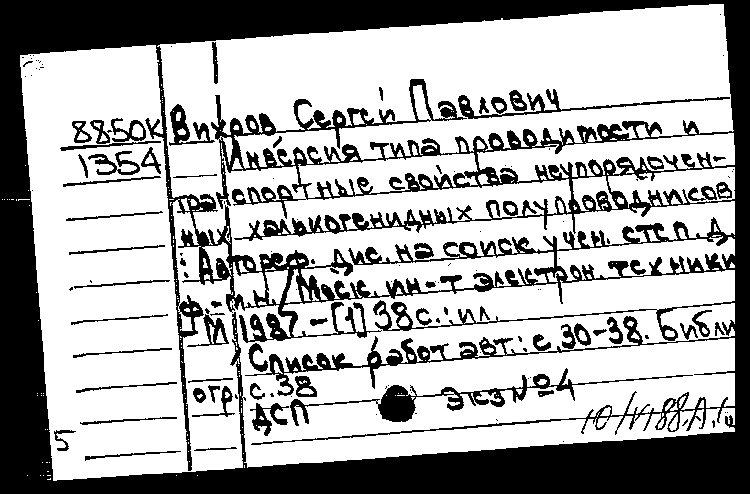 88-50К Вихров Сергей Павлович
1354 Инверсия типа проводимости и
транспортные свойства неупорядочен-
ных халькогенидных полупроводников
: Автореф. дис. на соиск. учен. степ. д.
ф.-м.н. / Моск. ин-т электрон. техники
- М 1987. - [1] 38 с. : ил.
Список работ авт.: с. 30-38. Библи
огр. с. 38
ДСП Экз №4
5